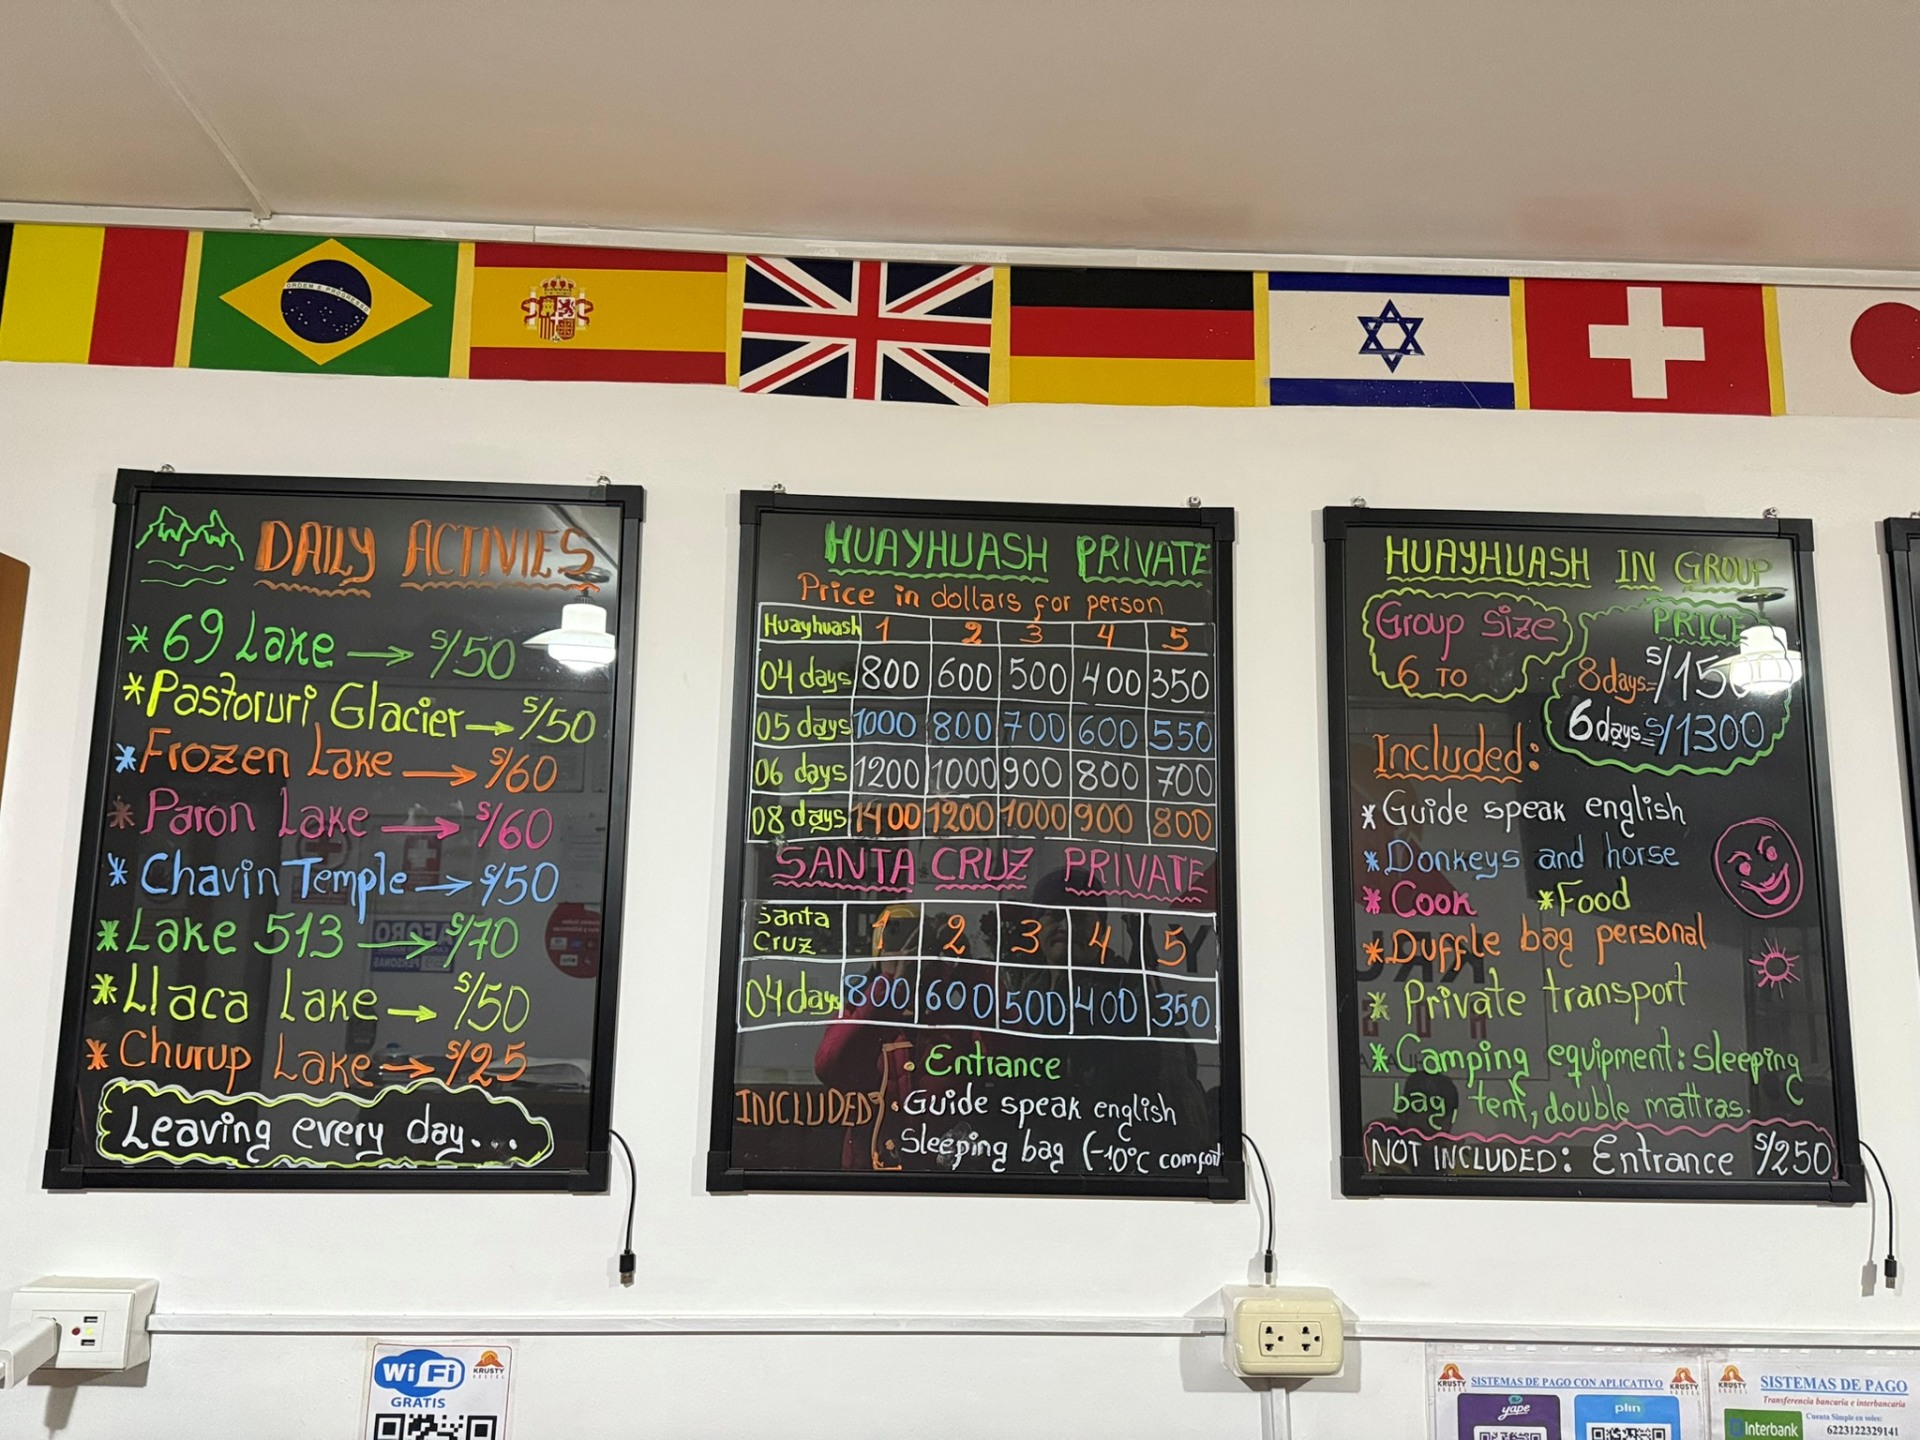 ORDEM E PROGRESSO
DAILY ACTIVIES
* 69 Lake → S/50
* Pastoruri Glacier → S/50
* Frozen Lake → S/60
* Paron Lake → S/60
* Chavin Temple → S/50
* Lake 513 → S/70
* Llaca Lake → S/50
* Churup Lake → S/25
Leaving every day...
HUAYHUASH PRIVATE
Price in dollars for person
Huayhuash 1 2 3 4 5
04 days 800 600 500 400 350
05 days 1000 800 700 600 550
06 days 1200 1000 900 800 700
08 days 1400 1200 1000 900 800
SANTA CRUZ PRIVATE
Santa Cruz 1 2 3 4 5
04 days 800 600 500 400 350
INCLUDED
• Entrance
• Guide speak english
Sleeping bag (-10°C comfort
HUAYHUASH IN GROUP
Group Size
6 TO
PRICE
8days=
6days=S/1300
Included:
* Guide speak english
* Donkeys and horse
* Cook * Food
* Duffle bag personal
* Private transport
* Camping equipment: Sleeping
bag, tent, double mattras.
NOT INCLUDED: Entrance S/250
WiFi
GRATIS
KRUSTY
HOSTEL
KRUSTY
HOSTEL
SISTEMAS DE PAGO CON APLICATIVO
KRUSTY
HOSTEL
yape
plin
KRUSTY
HOSTEL
SISTEMAS DE PAGO
Transferencia bancaria e interbancaria
Interbank
Cuenta Simple en soles:
6223122329141